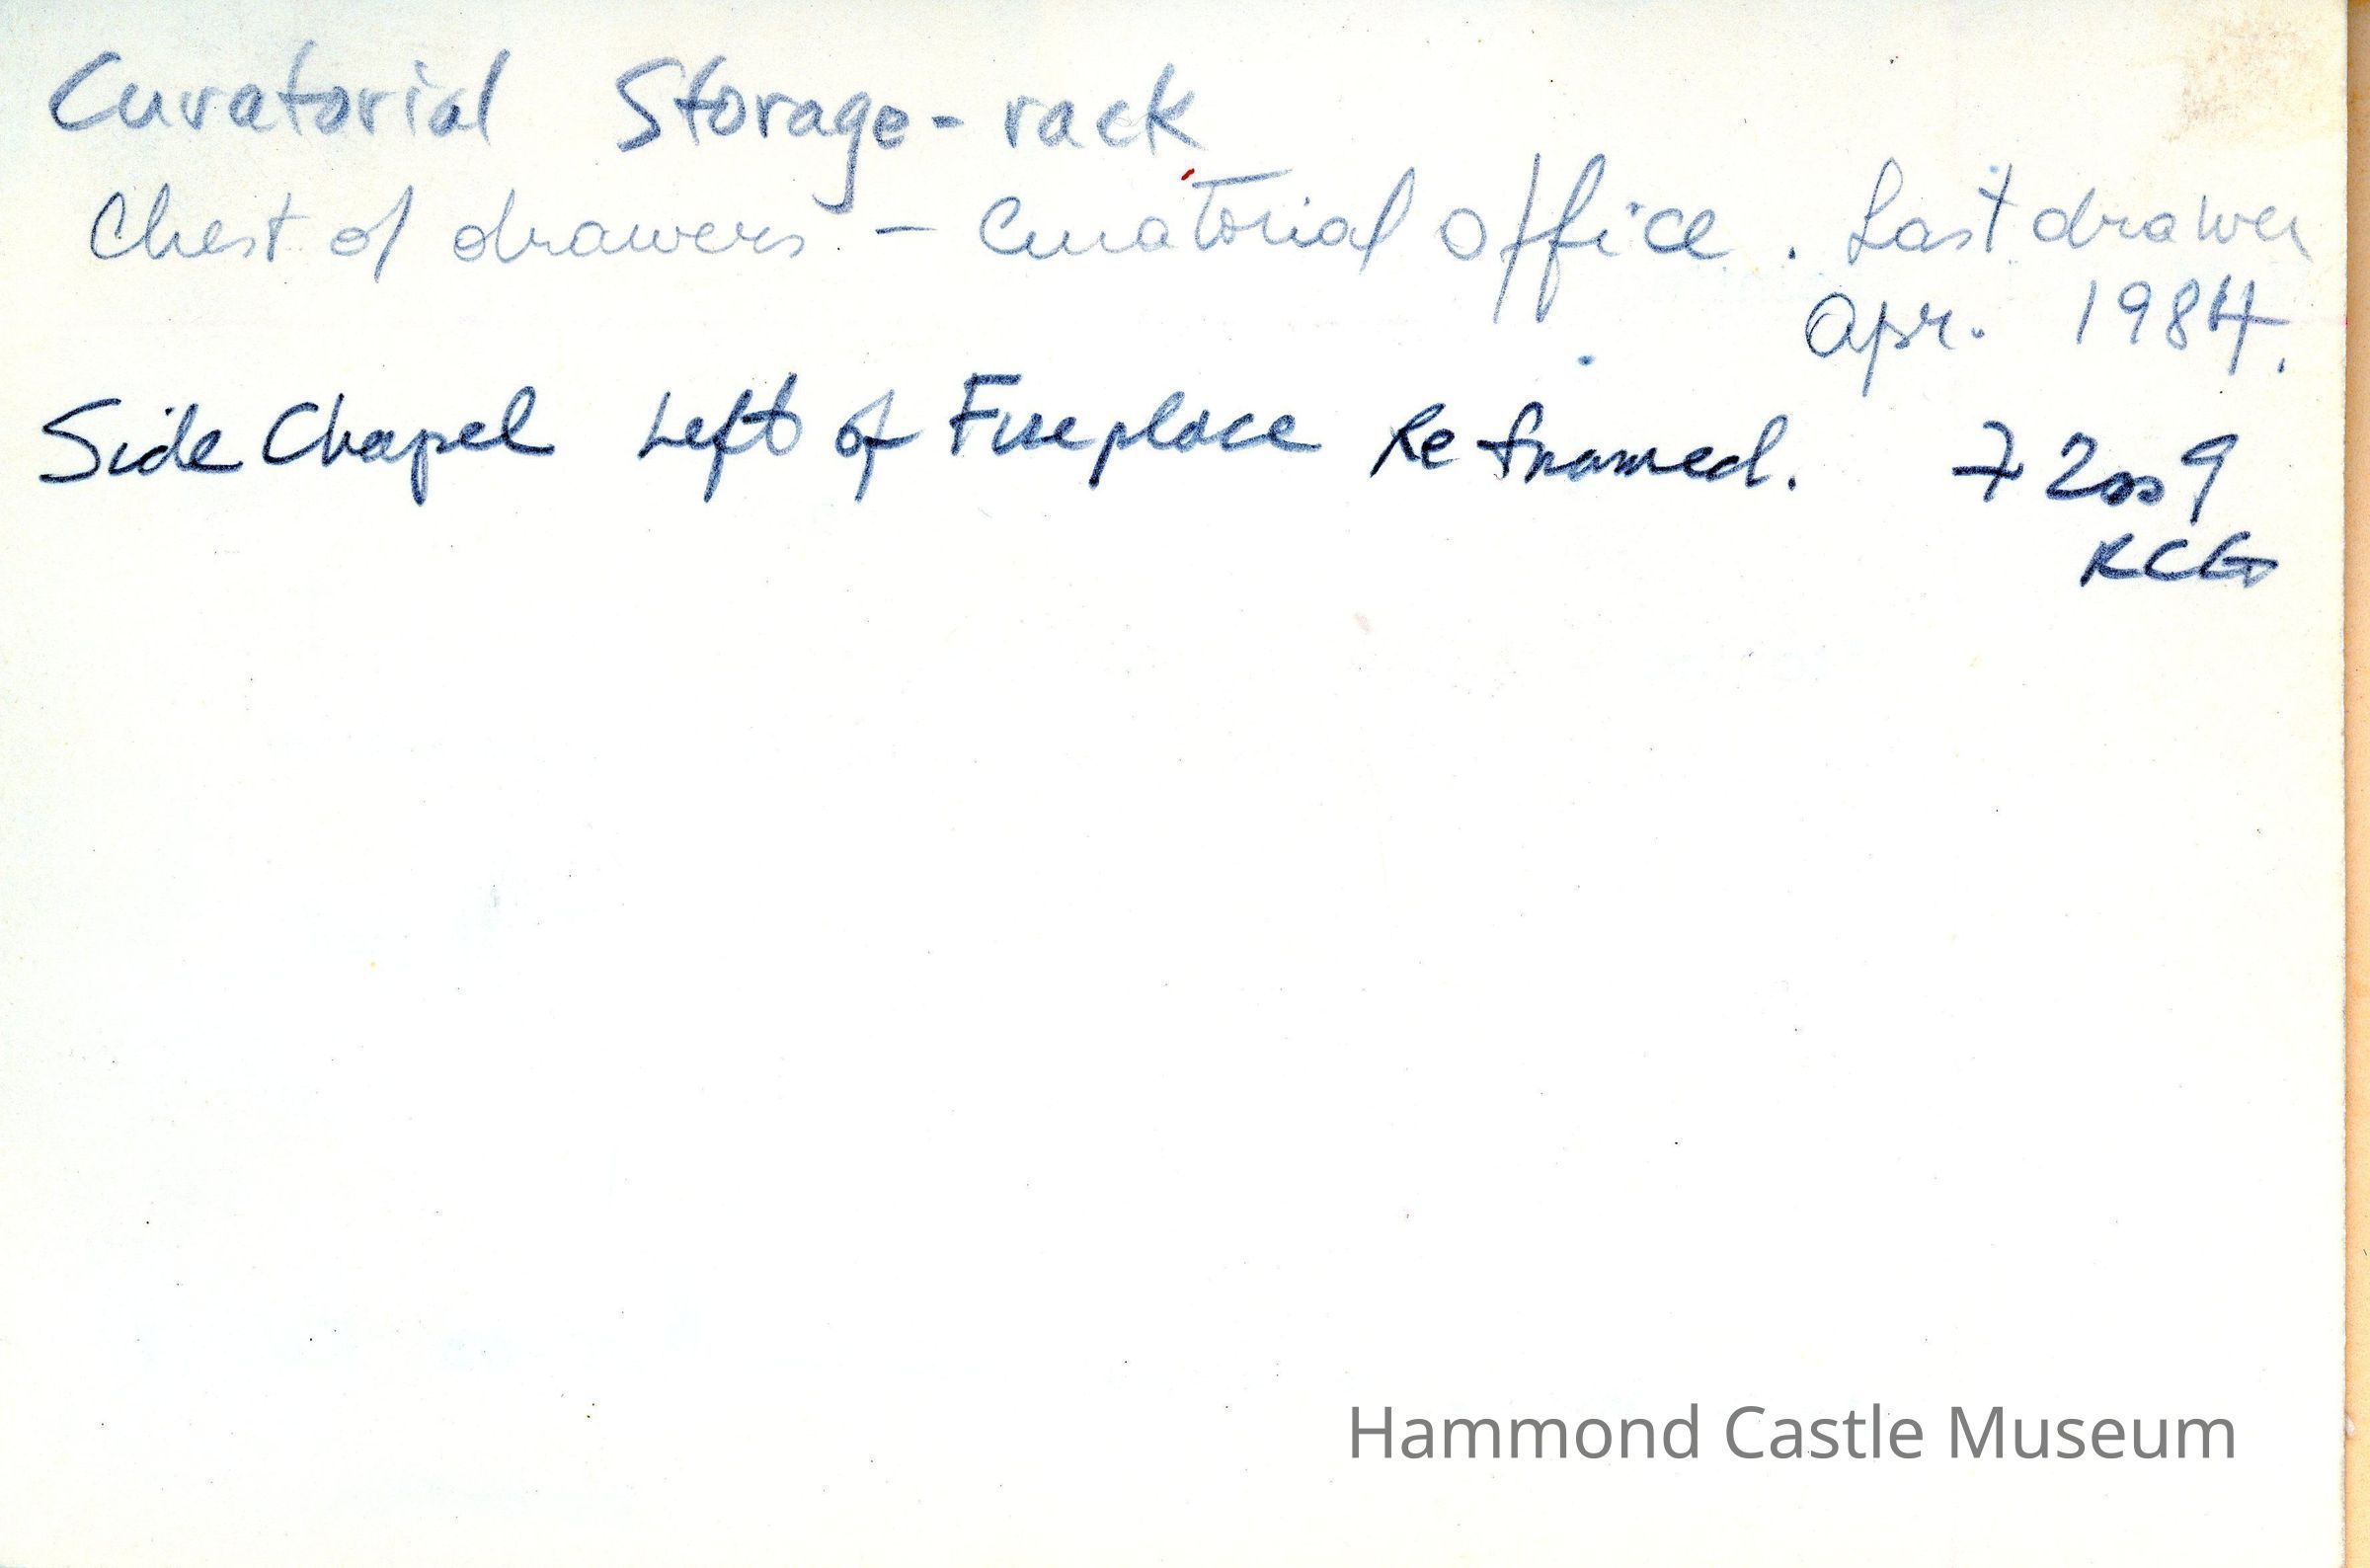 Curatorial Storage-rack
Chest of drawers - Curatorial office. Last drawer
Apr. 1984.
Side Chapel Left of Fireplace Reframed. 7 2009
KCG
Hammond Castle Museum